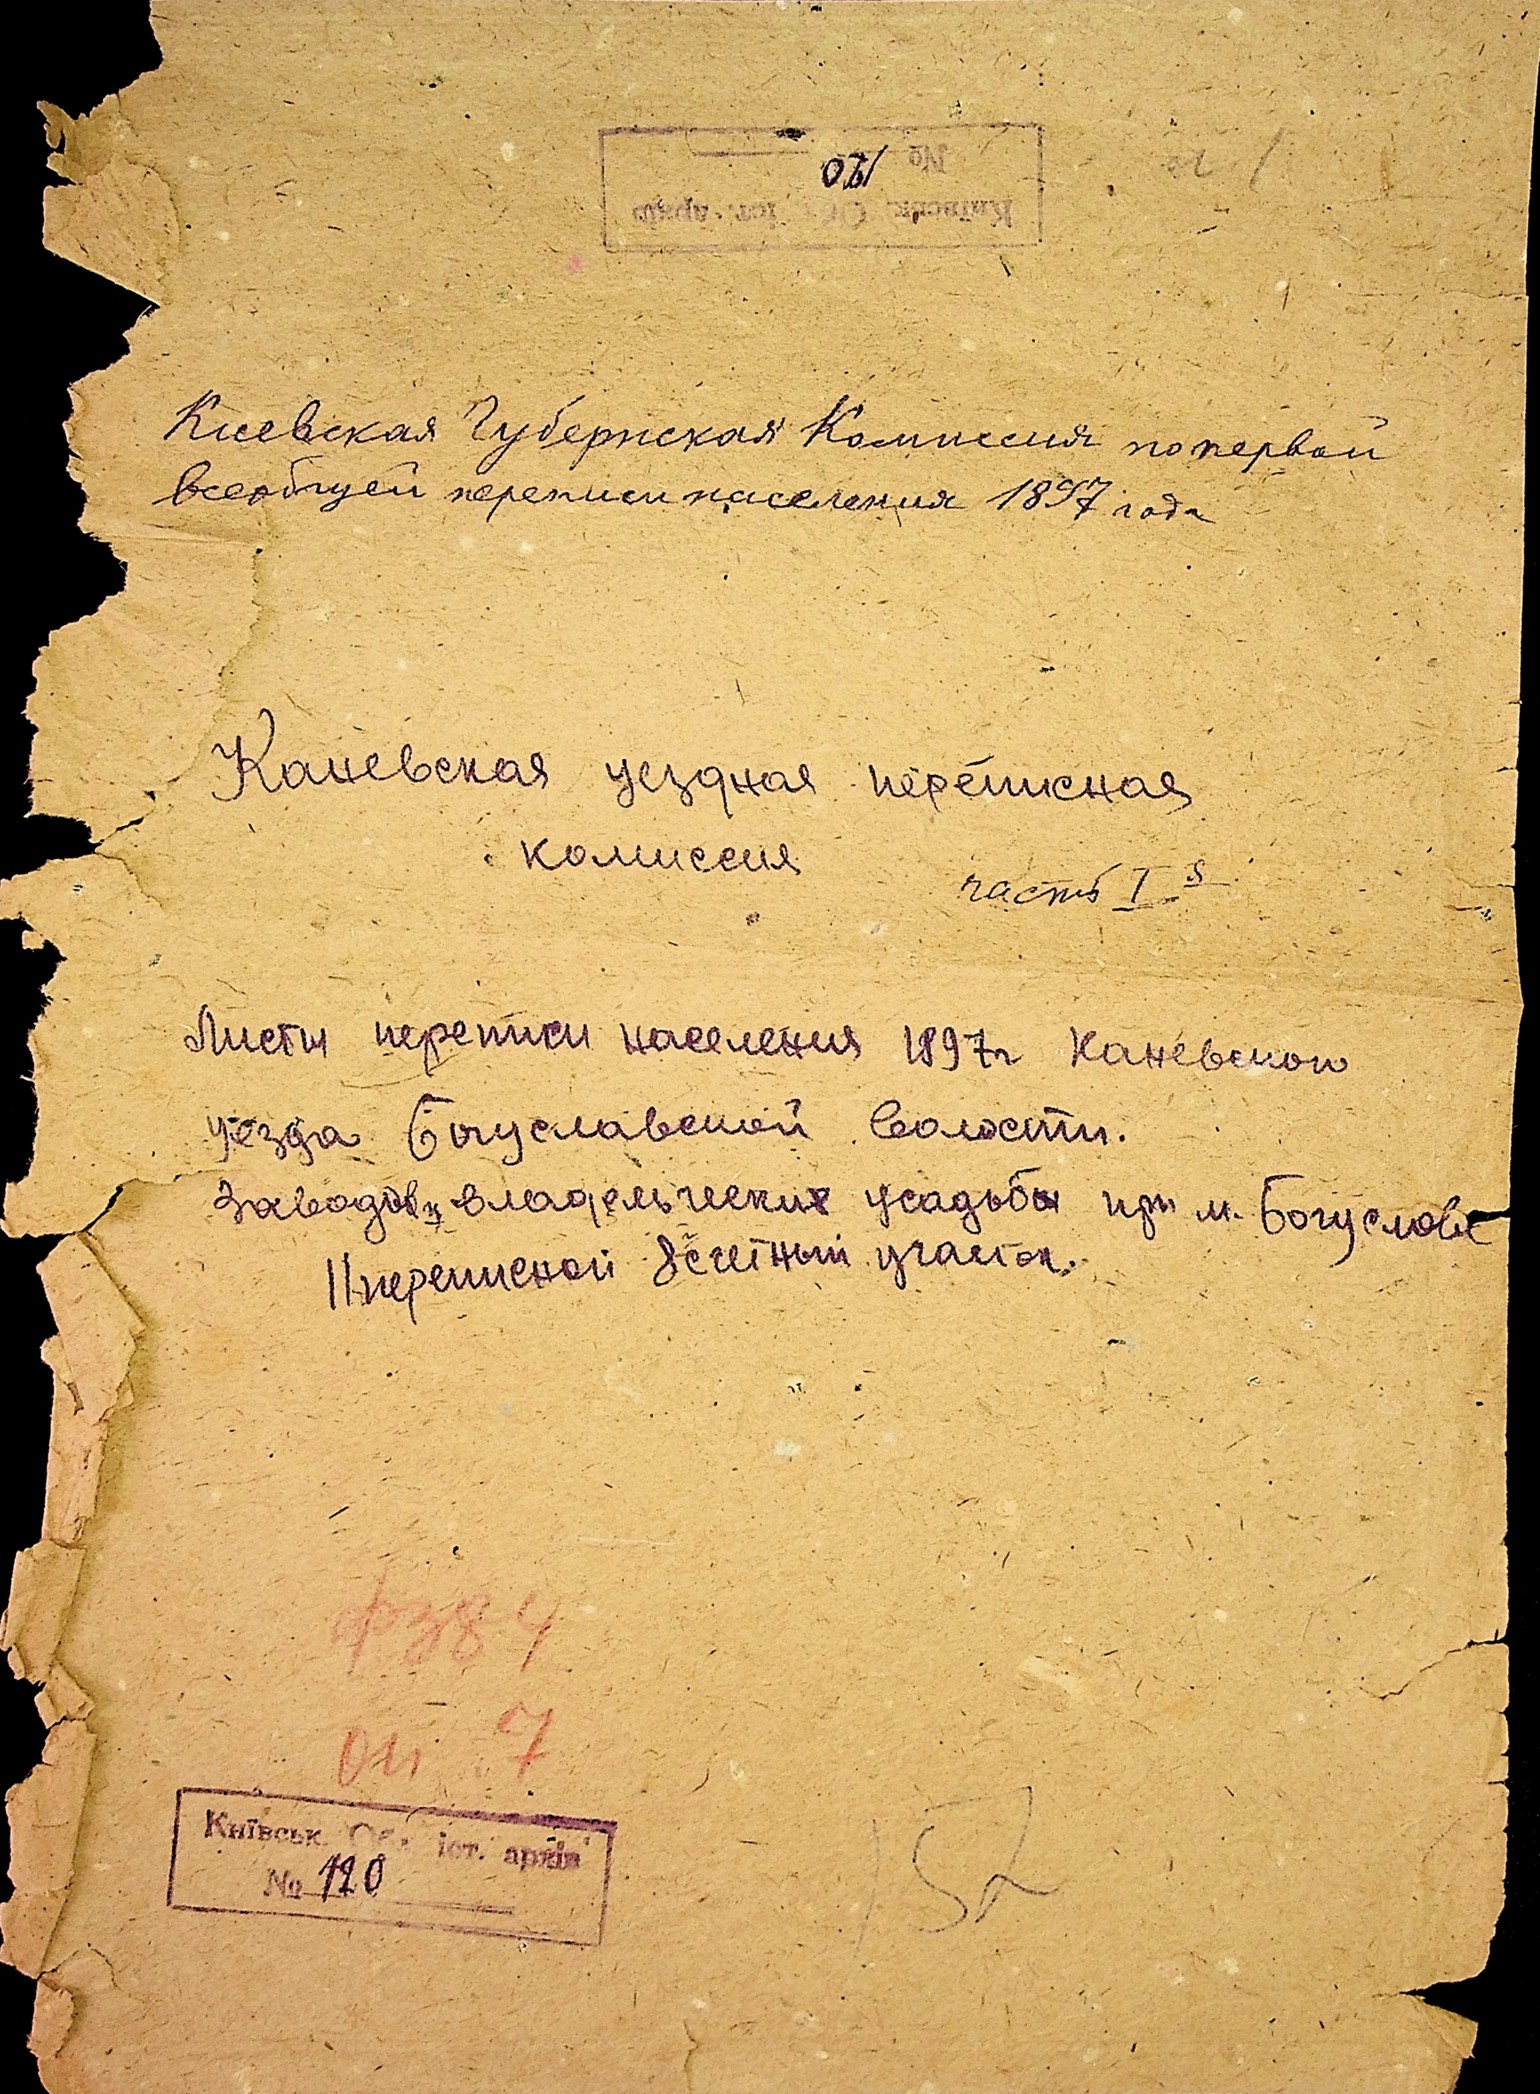 № 120
Київськ. Об іст. архів
Киевская Губернская Комиссия по первой
всеобщей переписи населения 1897 года
Каневская уездная переписная
комиссия
часть I я
Листы переписи населения 1897 г Каневского
уезда Богуславской волости.
Заводов и владельческих усадьбы при м. Богуславе
II переписной 8 счетный участок.
ф 384
оп 7
Київськ. Об іст. архів
№ 120
152